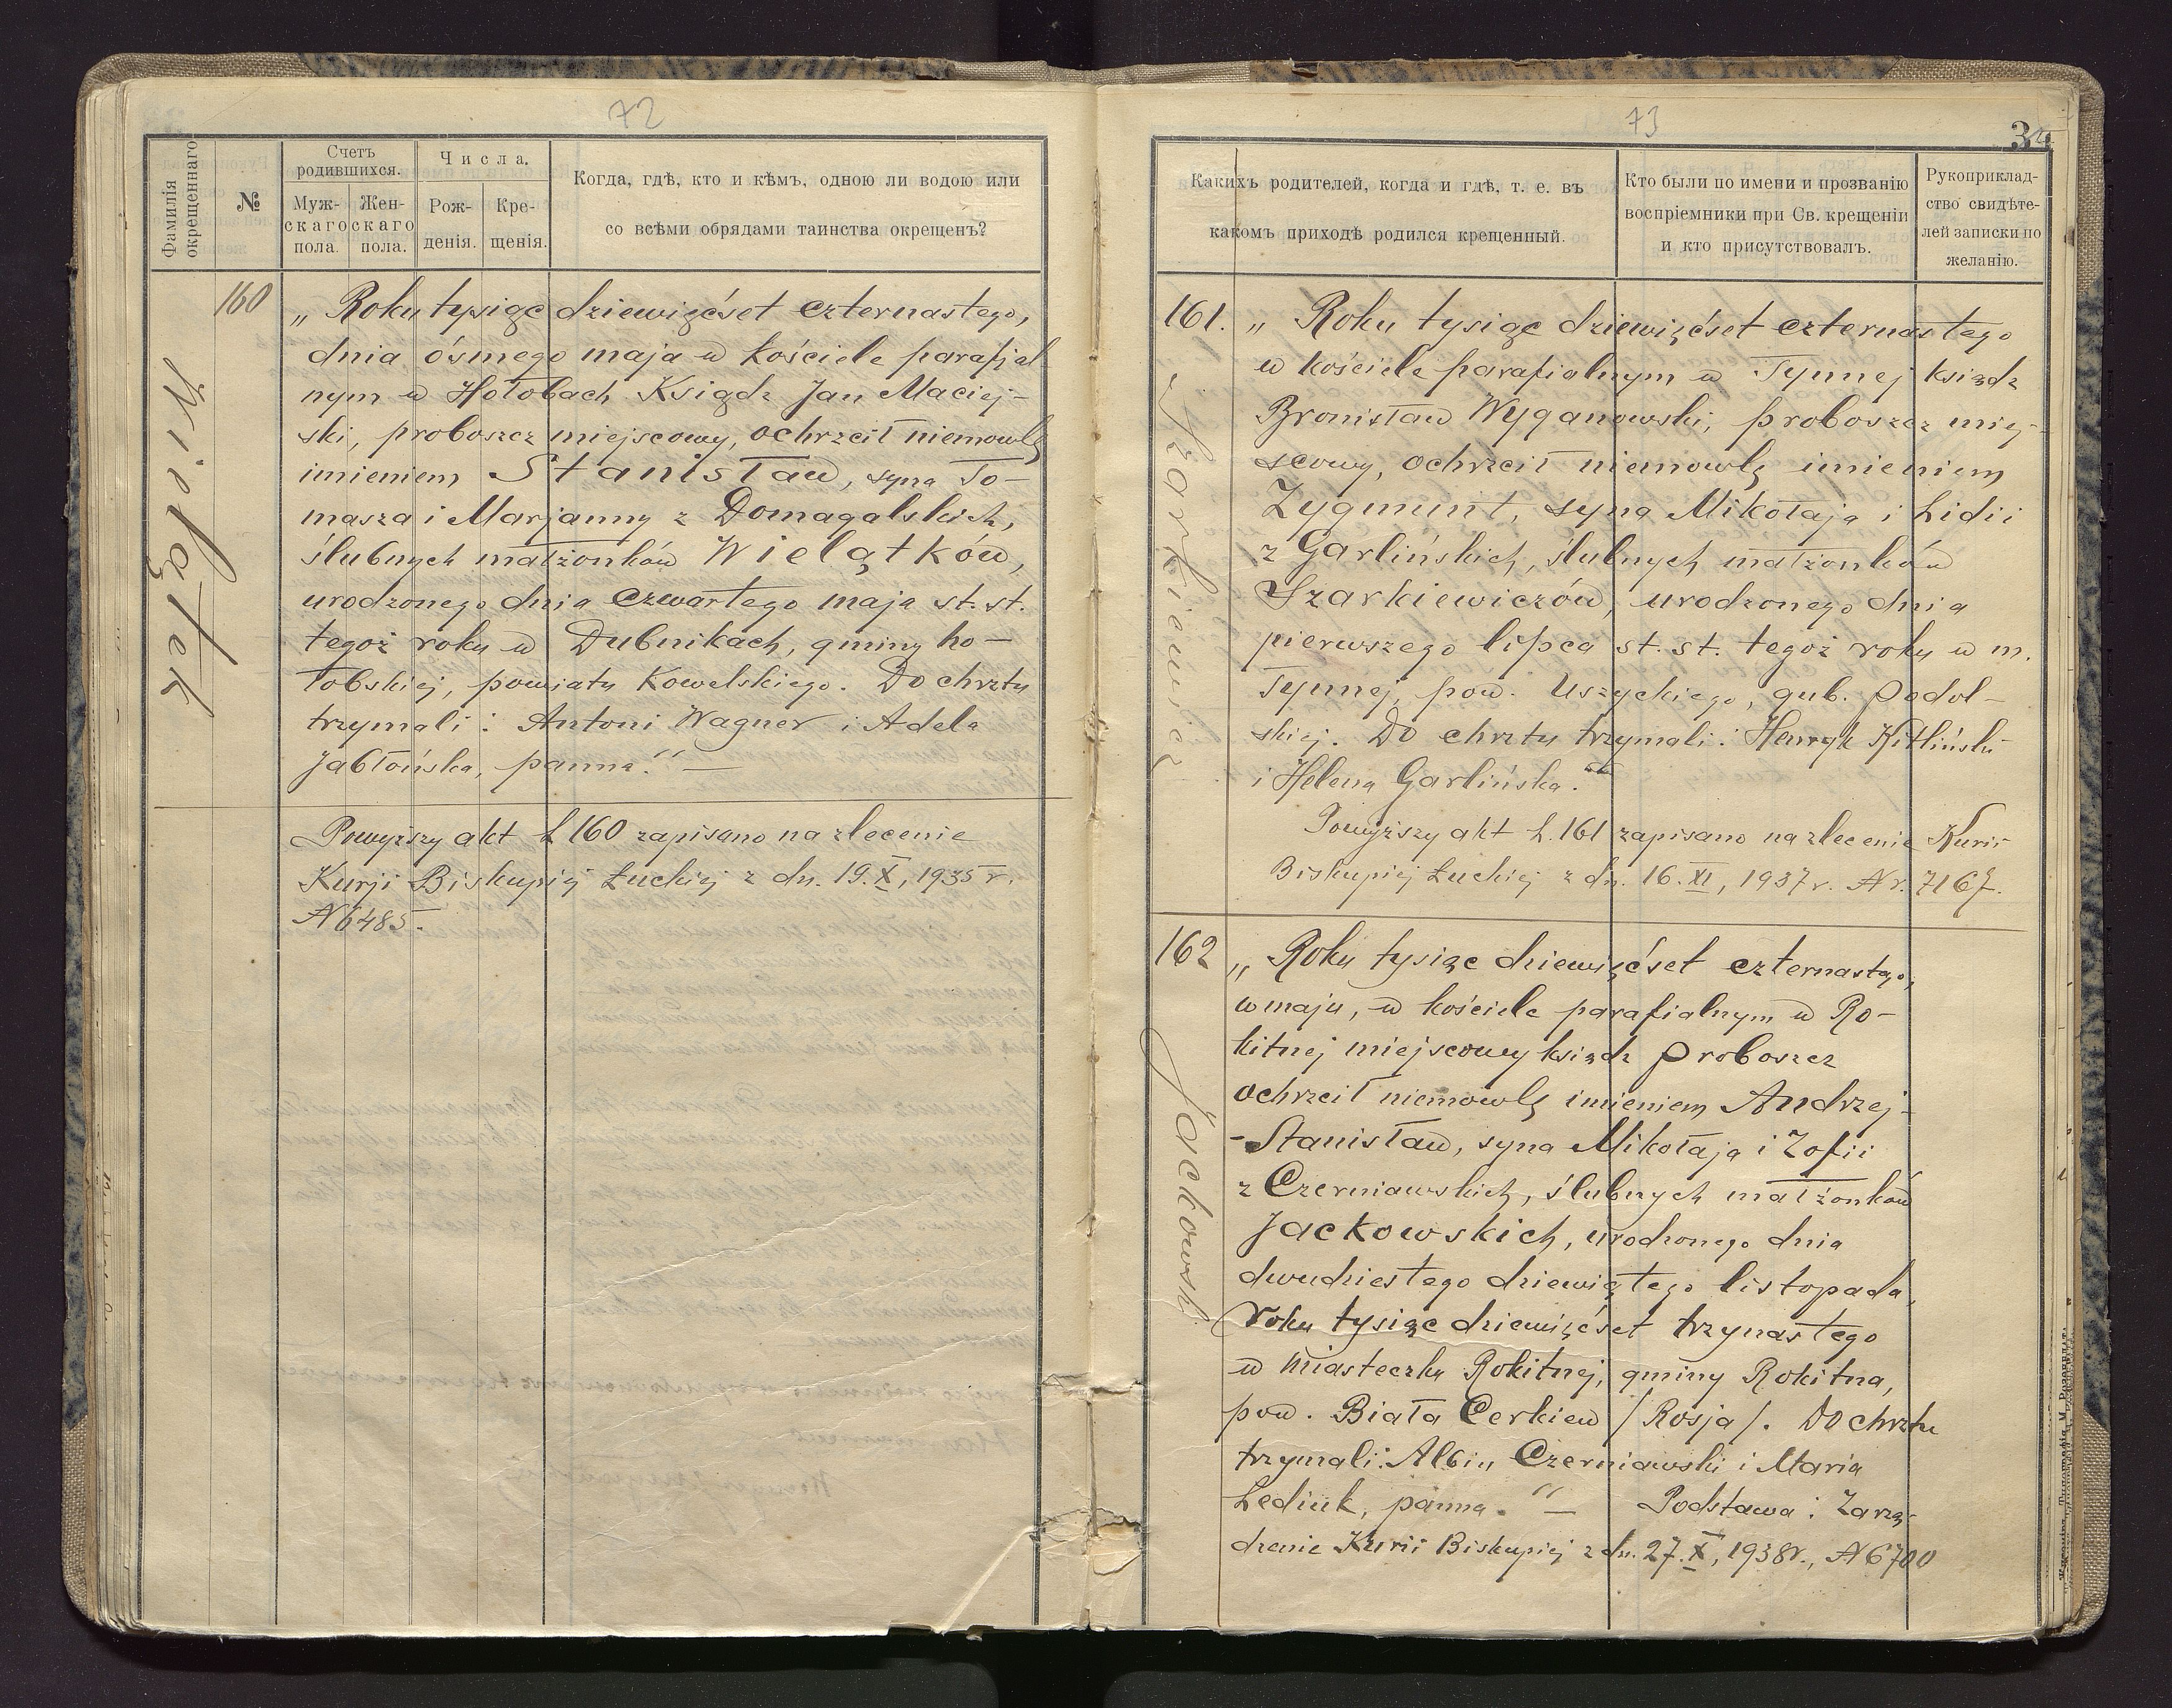 72
Фамилія окрещеннаго.
№
Счетъ родившихся.
Муж-скаго пола.
Жен-скаго пола.
Числа.
Рож-денія.
Кре-щенія.
Когда, гдѣ, кто и кѣмъ, одною ли водою или
со всѣми обрядами таинства окрещенъ?
Wielątek
160
„Roku tysiąc dziewięćset czternastego,
dnia ósmego maja w kościele parafjal
nym w Hołobach Ksiądz Jan Maciej-
ski, proboszcz miejscowy, ochrzcił niemowlę
imieniem Stanisław, syna To-
masza i Marjanny z Domagalskich,
ślubnych małżonków Wielątków,
urodzonego dnia czwartego maja st. st.
tegoż roku w Dubnikach, gminy ho-
łobskiej, powiatu Kowelskiego. Do chrztu
trzymali: Antoni Wagner i Adela
Jabłońska, panna." —
Powyższy akt L 160 zapisano na zlecenie
Kurji Biskupiej Łuckiej z dn. 19.X, 1935 r.
№ 6485.
73
34
Какихъ родителей, когда и гдѣ, т. е. въ
какомъ приходѣ родился крещенный.
Кто были по имени и прозванію
воспріемники при Св. крещеніи
и кто присутствовалъ.
Рукоприклад-
ство свидѣте-
лей записки по
желанію.
Szarkiewicz
161.
„Roku tysiąc dziewięćset czternastego
w kościele parafialnym w Tynnej ksiądz
Bronisław Wyganowski, proboszcz miej-
scowy, ochrzcił niemowlę imieniem
Zygmunt, syna Mikołaja i Lidii
z Garlińskich, ślubnych małżonków
Szarkiewiczów, urodzonego dnia
pierwszego lipca st. st. tegoż roku w m.
Tynnej, pow. Uszyckiego, gub. Podol-
skiej. Do chrztu trzymali: Henryk Kitliński
i Helena Garlińska."
Powyższy akt L. 161 zapisano na zlecenie Kurii
Biskupiej Łuckiej z dn. 16.XI, 1937 r. Nr. 7167.
Jackowski
162
„Roku tysiąc dziewięćset czternastego,
w maju, w kościele parafialnym w Ro-
kitnej miejscowy ksiądz proboszcz
ochrzcił niemowlę imieniem Andrzej-
-Stanisław, syna Mikołaja i Zofii
z Czerniawskich, ślubnych małżonków
Jackowskich, urodzonego dnia
dwudziestego dziewiątego listopada,
roku tysiąc dziewięćset trzynastego
w miasteczku Rokitnej, gminy Rokitna,
pow. Biała Cerkiew /Rosja/. Do chrztu
trzymali: Albin Czerniawski i Maria
Lediuk, panna." — Podstawa: Zarzą-
dzenie Kurii Biskupiej z dn. 27.X, 1938 r., № 6700